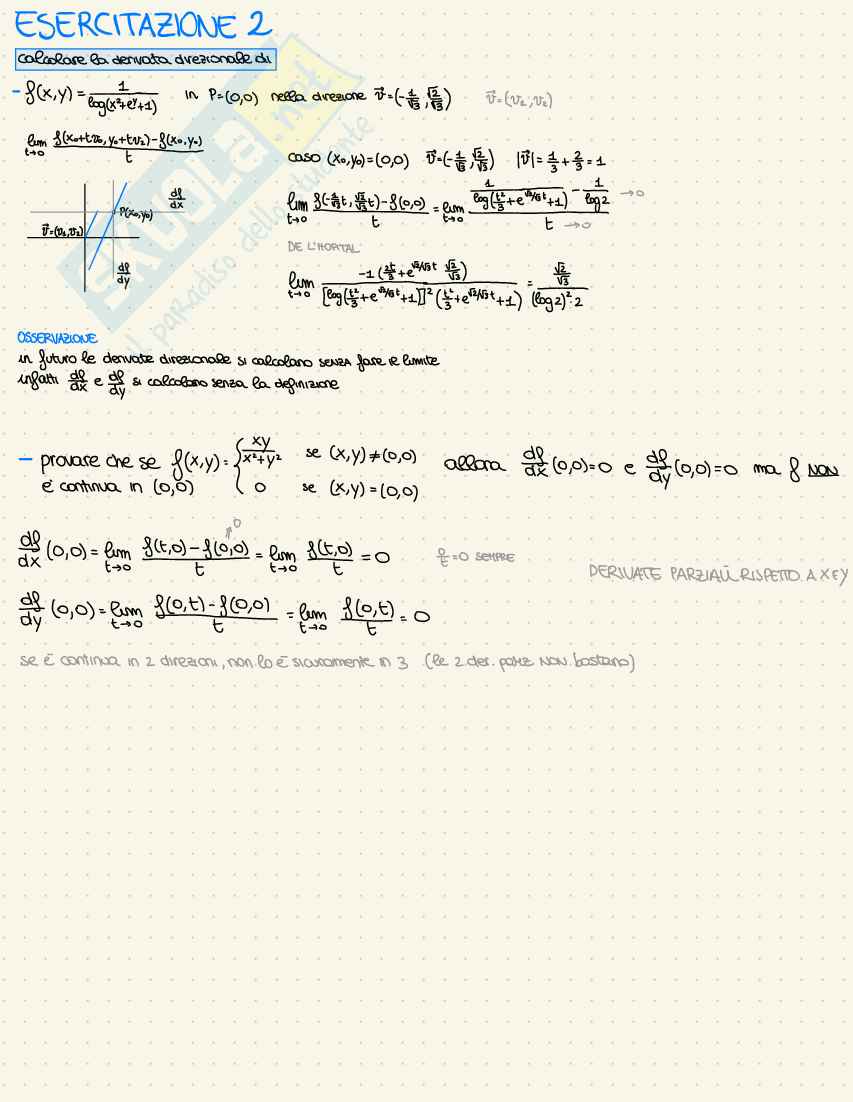 ESERCITAZIONE 2
calcolare la derivata direzionale di
- f(x,y) = 1/log(x²+e^y+1) in P=(0,0) nella direzione v⃗=(-1/√3, √2/√3) v⃗=(v₁,v₂)
lim t→0 (f(x₀+tv₀, y₀+tv₂)-f(x₀,y₀))/t
caso (x₀,y₀)=(0,0) v⃗=(-1/√3, √2/√3) |v⃗|=1/3+2/3=1
df/dx
P(x₀,y₀)
v⃗=(v₁,v₂)
df/dy
lim t→0 (f(-1/√3 t, √2/√3 t)-f(0,0))/t = lim t→0 (1/log(t²/3+e^(√2/√3 t)+1) - 1/log2)/t →0 →0
DE L'HOPITAL
lim t→0 (-1(2t/3+e^(√2/√3 t) √2/√3))/([log(t²/3+e^(√2/√3 t)+1)]² (t²/3+e^(√2/√3 t)+1)) = (√2/√3)/((log2)² 2)
OSSERVAZIONE
in futuro le derivate direzionale si calcolano SENZA fare il limite
infatti df/dx e df/dy si calcolano senza la definizione
- provare che se f(x,y) = { xy/(x²+y²) se (x,y)≠(0,0) allora df/dx (0,0)=0 e df/dy (0,0)=0 ma f NON
è continua in (0,0) { 0 se (x,y)=(0,0)
df/dx (0,0) = lim t→0 (f(t,0)-f(0,0))/t = lim t→0 f(t,0)/t = 0 0/t=0 SEMPRE
0
DERIVATE PARZIALI RISPETTO A X E Y
df/dy (0,0) = lim t→0 (f(0,t)-f(0,0))/t = lim t→0 f(0,t)/t = 0
se è continua in 2 direzioni, non lo è sicuramente in 3 (le 2 der. parz NON bastano)
SKUOLA.net
il paradiso dello studente